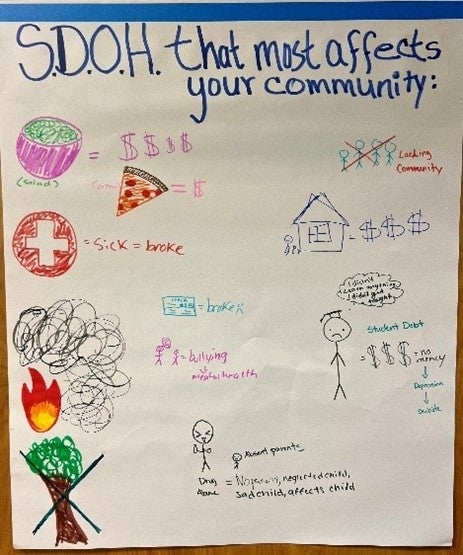 S.D.O.H. that most affects
your community:
(salad)
= $$$$
(pizza)
= $
Lacking
Community
= sick = broke
= $$$
= broker
I didn't
learn anything
I didn't get
taught
Student Debt
= $$$ = no
money
↓
Depression
↓
suicide
= bullying
↓
mental health
Absent parents
Drug
Abuse
= No parent, neglected child,
sad child, affects child